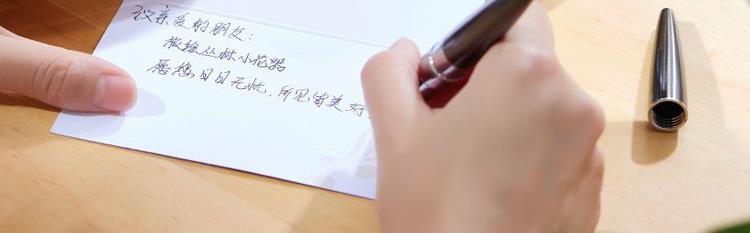 致亲爱的朋友：
丛林小花器
愿您日日无忧，所见皆美好